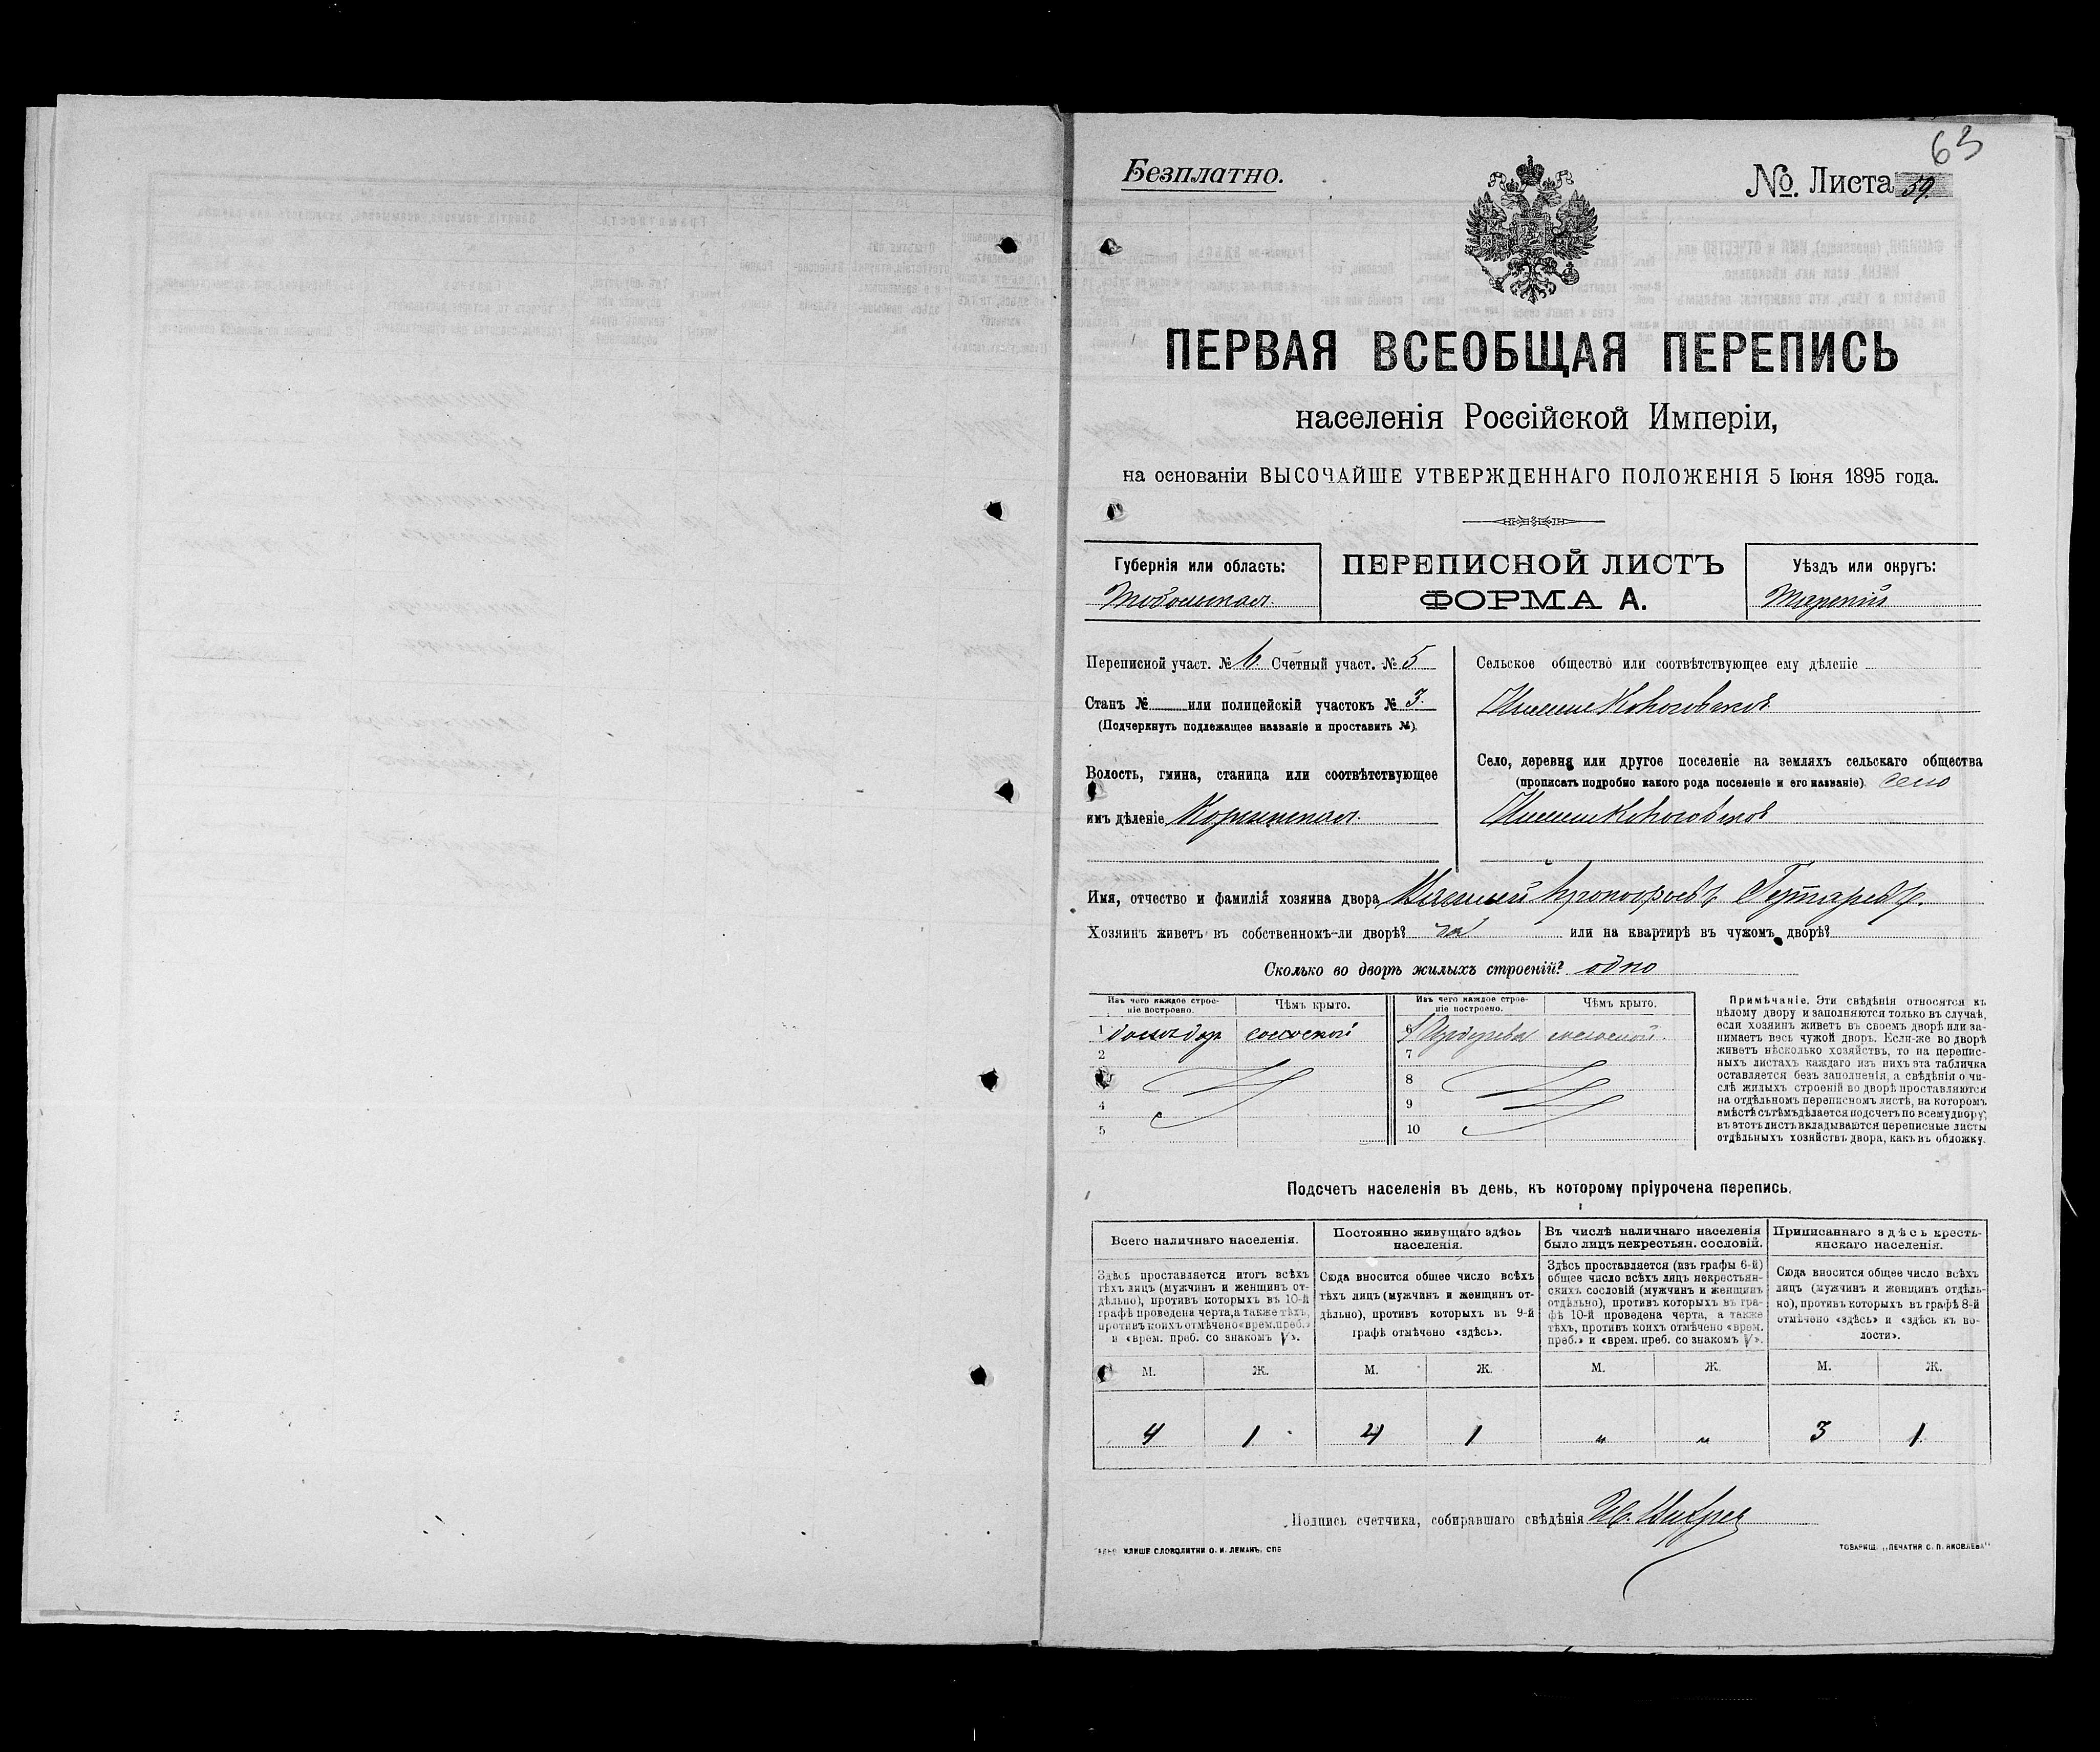 63
Безплатно.
№. Листа 59.
ПЕРВАЯ ВСЕОБЩАЯ ПЕРЕПИСЬ
населенія Россійской Имперіи,
на основаніи ВЫСОЧАЙШЕ УТВЕРЖДЕННАГО ПОЛОЖЕНІЯ 5 Іюня 1895 года.
Губернія или область:
Тобольская.
ПЕРЕПИСНОЙ ЛИСТЪ
ФОРМА А.
Уѣздъ или округъ:
Тарскій
Переписной участ. № 6 Счетный участ. № 5
Станъ № или полицейскій участокъ № 3.
(Подчеркнуть подлежащее названіе и проставить №).
Волость, гмина, станица или соотвѣтствующее
имъ дѣленіе
Сельское общество или соотвѣтствующее ему дѣленіе
Село, деревня или другое поселеніе на земляхъ сельскаго общества
(прописать подробно какого рода поселеніе и его названіе) село
Имя, отчество и фамилія хозяина двора
Хозяинъ живетъ въ собственномъ-ли дворѣ? да или на квартирѣ въ чужомъ дворѣ?
Сколько во дворѣ жилыхъ строеній? одно
Изъ чего каждое строе-
ніе построено.
Чѣмъ крыто.
Изъ чего каждое строе-
ніе построено.
Чѣмъ крыто.
1
6
2
7
8
4
9
5
10
Примѣчаніе. Эти свѣдѣнія относятся къ
цѣлому двору и заполняются только въ случаѣ,
если хозяинъ живетъ въ своемъ дворѣ или за-
нимаетъ весь чужой дворъ. Если-же во дворѣ
живетъ нѣсколько хозяйствъ, то на перепис-
ныхъ листахъ каждаго изъ нихъ эта табличка
оставляется безъ заполненія, а свѣдѣнія о чи-
слѣ жилыхъ строеній во дворѣ проставляются
на отдѣльномъ переписномъ листѣ, на которомъ
вмѣстѣ съ тѣмъ дѣлается подсчетъ по всему двору;
въ этотъ листъ вкладываются переписные листы
отдѣльныхъ хозяйствъ двора, какъ въ обложку.
Подсчетъ населенія въ день, къ которому пріурочена перепись.
Всего наличнаго населенія.
Постоянно живущаго здѣсь
населенія.
Въ числѣ наличнаго населенія
было лицъ некрестьян. сословій.
Приписаннаго здѣсь кресть-
янскаго населенія.
Здѣсь проставляется итогъ всѣхъ
тѣхъ лицъ (мужчинъ и женщинъ от-
дѣльно), противъ которыхъ въ 10-й
графѣ проведена черта, а также тѣхъ,
противъ коихъ отмѣчено «врем. преб.»
и «врем. преб. со знакомъ V».
Сюда вносится общее число всѣхъ
тѣхъ лицъ (мужчинъ и женщинъ от-
дѣльно), противъ которыхъ въ 9-й
графѣ отмѣчено «здѣсь».
Здѣсь проставляется (изъ графы 6-й)
общее число всѣхъ лицъ некрестьян-
скихъ сословій (мужчинъ и женщинъ
отдѣльно), противъ которыхъ въ гра-
фѣ 10-й проведена черта, а также
тѣхъ, противъ коихъ отмѣчено «врем.
преб.» и «врем. преб. со знакомъ V».
Сюда вносится общее число всѣхъ
лицъ (мужчинъ и женщинъ отдѣль-
но), противъ которыхъ въ графѣ 8-й
отмѣчено «здѣсь» и «здѣсь къ во-
лости».
М. Ж. М. Ж. М. Ж. М. Ж.
4 1 4 1 „ „ 3 1
Подпись счетчика, собиравшаго свѣдѣнія
КЛИШЕ СЛОВОЛИТНИ О. И. ЛЕМАНЪ, СПБ
ТОВАРИЩ. „ПЕЧАТНЯ С. П. ЯКОВЛЕВА“